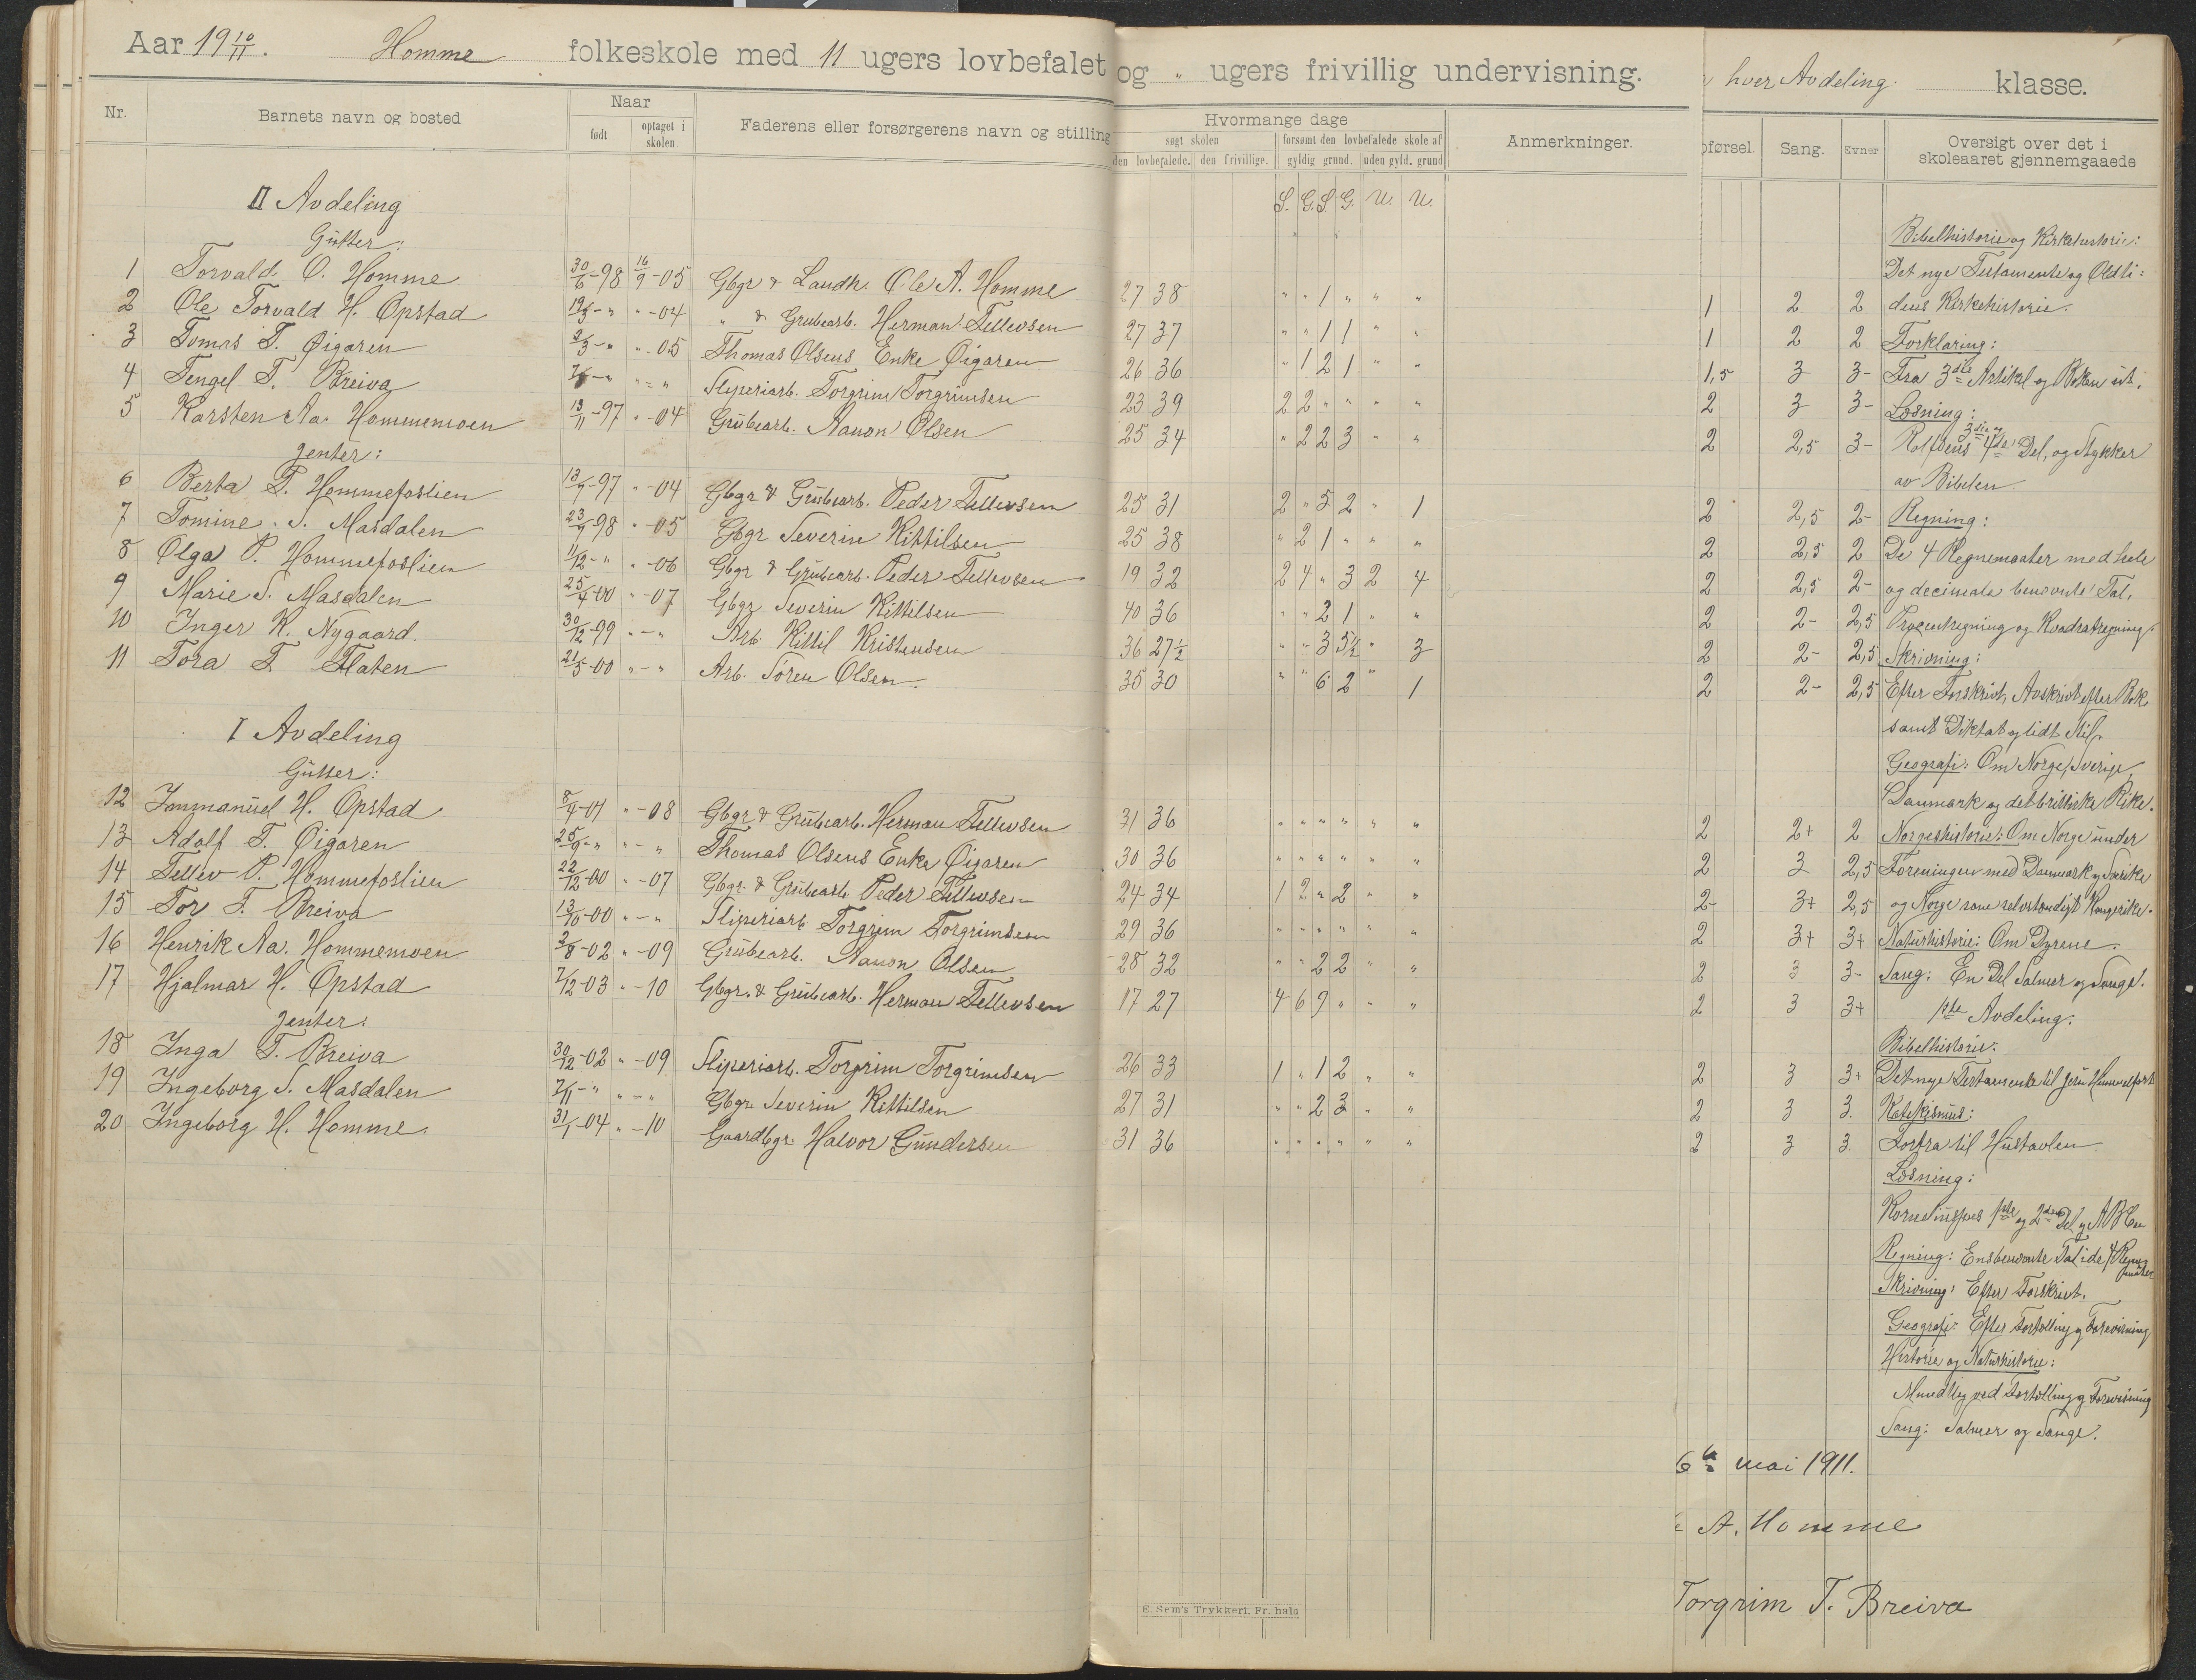 Aar 19 10/11. Homme folkeskole med 11 ugers lovbefalet og " ugers frivillig undervisning.
hver Avdeling. klasse.
Nr. Barnets navn og bosted Naar født optaget i skolen. Faderens eller forsørgerens navn og stilling
Hvormange dage søgt skolen den lovbefalede. den frivillige. forsømt den lovbefalede skole af gyldig grund. uden gyld. grund Anmerkninger.
Sang. Evner Oversigt over det i skoleaaret gjennemgaaede
S. G. S. G. U. U.
II Avdeling
Gutter:
1 Torvald O. Homme 30/6-98 16/9-05 Gbgr & Landh. Ole A. Homme 27 38 " " 1 " " " 1 2 2
2 Ole Torvald H. Opstad 19/3-" "-04 " & Grubearb. Herman Tellevsen 27 37 " " 1 1 " " 1 2 2
3 Tomas T. Øigaren 2/3-" "-05 Thomas Olsens Enke Øigaren 26 36 " 1 2 1 " " 1,5 3 3-
4 Tengel T. Breiva "-" Sliperiarb. Torgrim Torgrimsen 23 39 2 2 " " " " 2 3 3-
5 Karsten Aa. Hommemoen 13/11-97 "-04 Grubearb. Aanon Olsen 25 34 " 2 2 3 " " 2 2,5 3-
Jenter:
6 Berta P. Hommefoslien 13/7-97 "-04 Gbgr & Grubearb. Peder Tellevsen 25 31 2 " 5 2 " 1 2 2,5 2-
7 Tomine S. Masdalen 23/7-98 "-05 Gbgr Severin Kittilsen 25 38 " 2 1 " " " 2 2,5 2
8 Olga P. Hommefoslien 11/12-" "-06 Gbgr & Grubearb. Peder Tellevsen 19 32 2 4 " 3 2 4 2 2,5 2-
9 Marie S. Masdalen 25/4-00 "-07 Gbgr Severin Kittilsen 40 36 " " 2 1 " " 2 2- 2,5
10 Inger K. Nygaard. 30/12-99 "-" Arb. Kittil Kristensen 36 27½ " " 3 5½ " 3 2 2- 2,5
11 Tora T. Flaten 21/5-00 "-" Arb. Søren Olsen. 35 30 " " 6 2 " 1 2 2- 2,5
I Avdeling
Gutter:
12 Immanuel H. Opstad 8/4-01 "-08 Gbgr & Grubearb. Herman Tellevsen 31 36 " " " " " " 2 2+ 2
13 Adolf T. Øigaren 25/9-" "-" Thomas Olsens Enke Øigaren 30 36 " " " " " " 2 3 2,5
14 Tellev P. Hommefoslien 22/12-00 "-07 Gbgr. & Grubearb. Peder Tellevsen 24 34 1 2 " 2 " " 2- 3+ 2,5
15 Tor T. Breiva 13/10-00 "-" Sliperiarb Torgrim Torgrimsen 29 36 " " " " " " 2 3+ 3+
16 Henrik Aa. Hommemoen 2/8-02 "-09 Grubearb. Aanon Olsen 28 32 " " 2 2 " " 2 3 3-
17 Hjalmar H. Opstad 7/12-03 "-10 Gbgr. & Grubearb. Herman Tellevsen 17 27 4 6 9 " " " 2 3 3+
Jenter:
18 Inga T. Breiva 30/12-02 "-09 Sliperiarb. Torgrim Torgrimsen 26 33 1 " 1 2 " " 2 3 3+
19 Ingeborg S. Masdalen 7/11-" "-" Gbgr. Severin Kittilsen 27 31 " " 2 3 " " 2 3 3.
20 Ingeborg H. Homme. 31/1-04 "-10 Gaardbgr. Halvor Gundersen 31 36 " " " " " " 2 3 3.
Bibelhistorie og Kirkehistorie:
Det nye Testamente og Oldti:
dens Kirkehistorie.
Forklaring:
Fra 3die Artikel og Boken ut.
Læsning:
Rolfsens 3die og 4de Del, og Stykker
av Bibelen.
Regning:
De 4 Regnemaater med hele
og decimale benævnte Tal,
Procentregning og Kvadratregning.
Skrivning:
Efter Forskrivt, Avskrivt efter Bok
samt Diktat og lidt Stil.
Geografi: Om Norge, Sverige
Danmark og det brittiske Rike.
Norgeshistorie: Om Norge under
Foreningen med Danmark og Sverike
og Norge som selvstændigt Kongerike.
Naturhistorie: Om Dyrene.
Sang: En Del Salmer og Sange.
1ste Avdeling:
Bibelhistorie:
Det nye Testamente til Jesu Himmelfart
Katekismus:
Forfra til Hustavlen
Læsning:
1ste og 2den Del og ABCen
Regning: Ensbenævnte Tal i de 4 Regningsmaater
Skrivning: Efter Forskrivt.
Geografi: Efter Fortælling og Forevisning
Historie og Naturhistorie:
Mundtlig ved Fortælling og Forevisning
Sang: Salmer og Sange.
mai 1911.
A. Homme
Torgrim T. Breiva
E. Sem's Trykkeri, Fr.hald